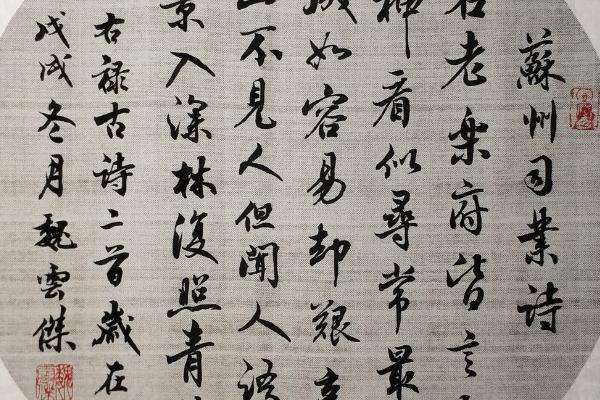 蘇州司業詩
老楽府皆言
神看似尋常最
成如容易却艱
不見人但聞人語
景入深林復照青
右録古詩二首歲在
戊戌冬月魏雲傑